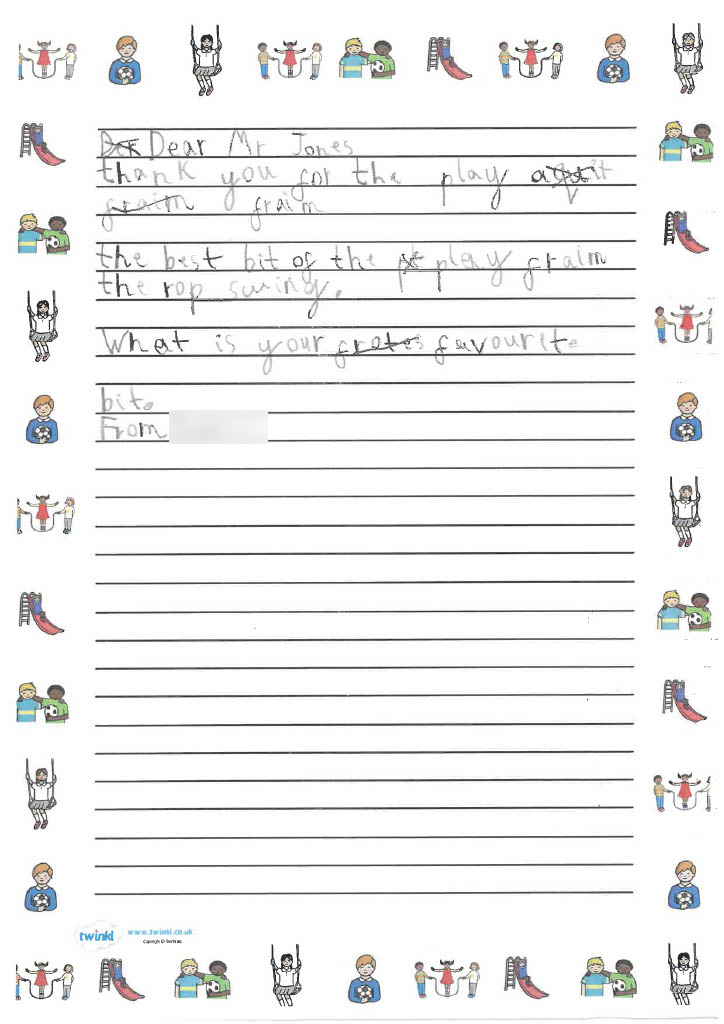 Dear Mr Jones
thank you for the play
graim fraim
the best bit of the play fraim
the rop swing.
What is your favourite
bit.
From
twinkl
www.twinkl.co.uk